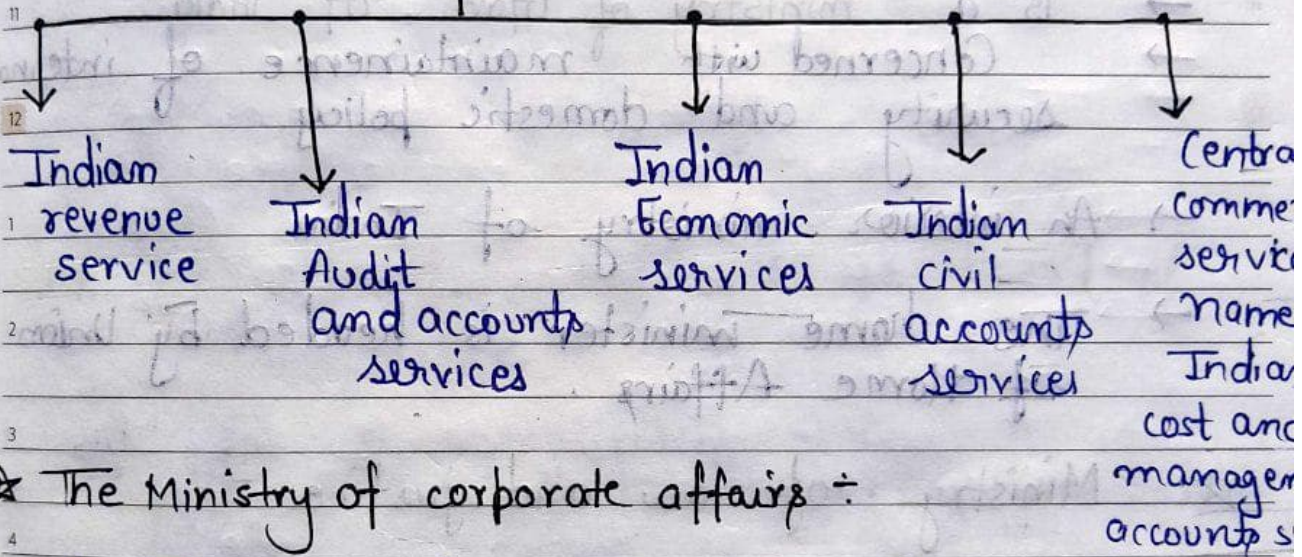 11
12
Indian
revenue
service
Indian
Audit
and accounts
services
Indian
Economic
services
Indian
civil
accounts
services
Centra
comme
service
name
India
cost and
managem
accounts s
1
2
3
4
☆ The Ministry of corporate affairs ÷